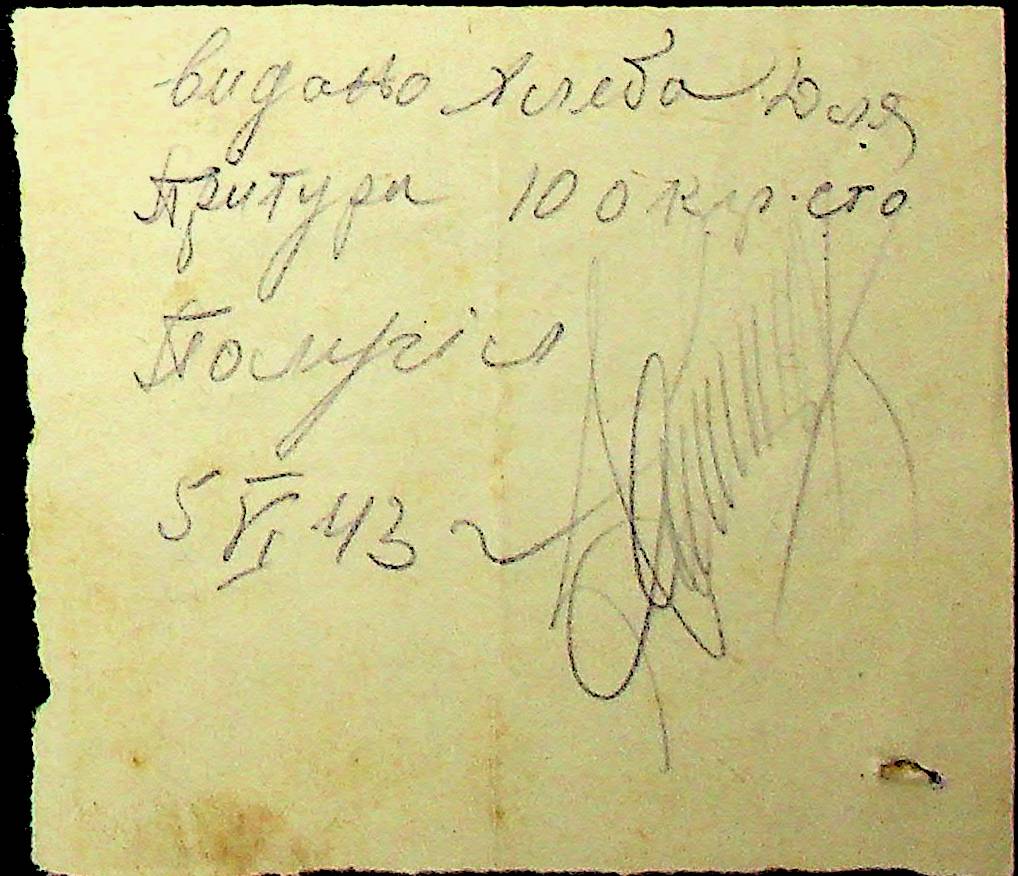 видано хлеба для
Притура 100 кгр. сто
Получіл
5 VI 43